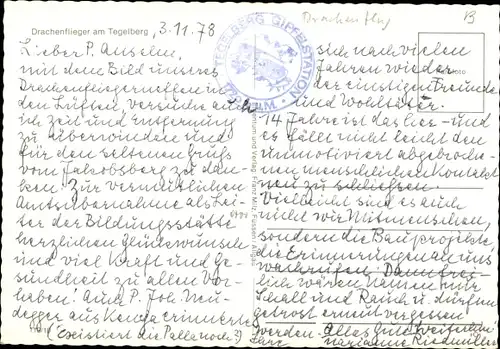 Drachenflieger am Tegelberg
3.11.78
Drachenflug
TEGELBERG GIPFELSTATION
Lieber P. Anselm,
mit dem Bild unseres
Drachenfliegerneffen in
den Lüften, versuche auch
ich Zeit und Entfernung
zu überwinden und
für den seltenen Gruß
vom Jakobsberg zu dan-
ken. Zur vermutlichen
Amtsübernahme als Lei-
ter der Bildungsstätte
herzlichen Glückwunsch
und viel Kraft und Ge-
sundheit zu allen Vor-
haben! Auch P. Joh. Neu-
degger aus Kenya erinnerte
(existiert die Pallenode?)
sich nach vielen
Jahren wieder
der einstigen Freunde
und Wohltäter.
14 Jahre ist das her – und
es fällt nicht leicht den
unmotiviert abgebroche-
nen menschlichen Kontakt
neu zu schließen.
Vielleicht sind es auch
nicht wir Mitmenschen,
sondern die Bauprojekte
die Erinnerungen an uns
wachrufen. Dann frei-
lich wären Namen nur
Schall und Rauch u. dürfen
getrost erneut vergessen
werden. Alles Gute weiterhin
Marianne Riedmiller